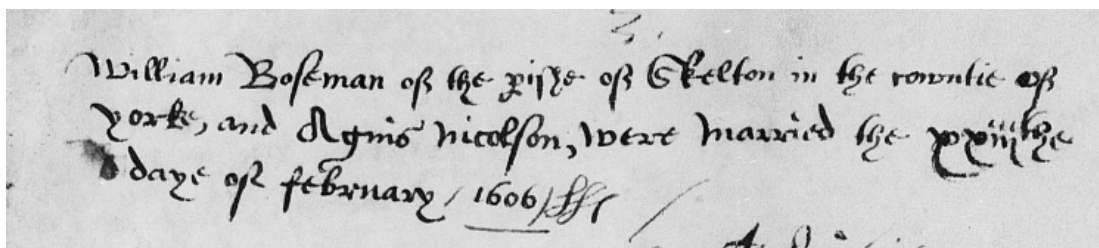 William Boseman of the pishe of Skelton in the cowntie of
yorke, and Agnis Nicolson, were married the xxiiithe
daye of february / 1606 /